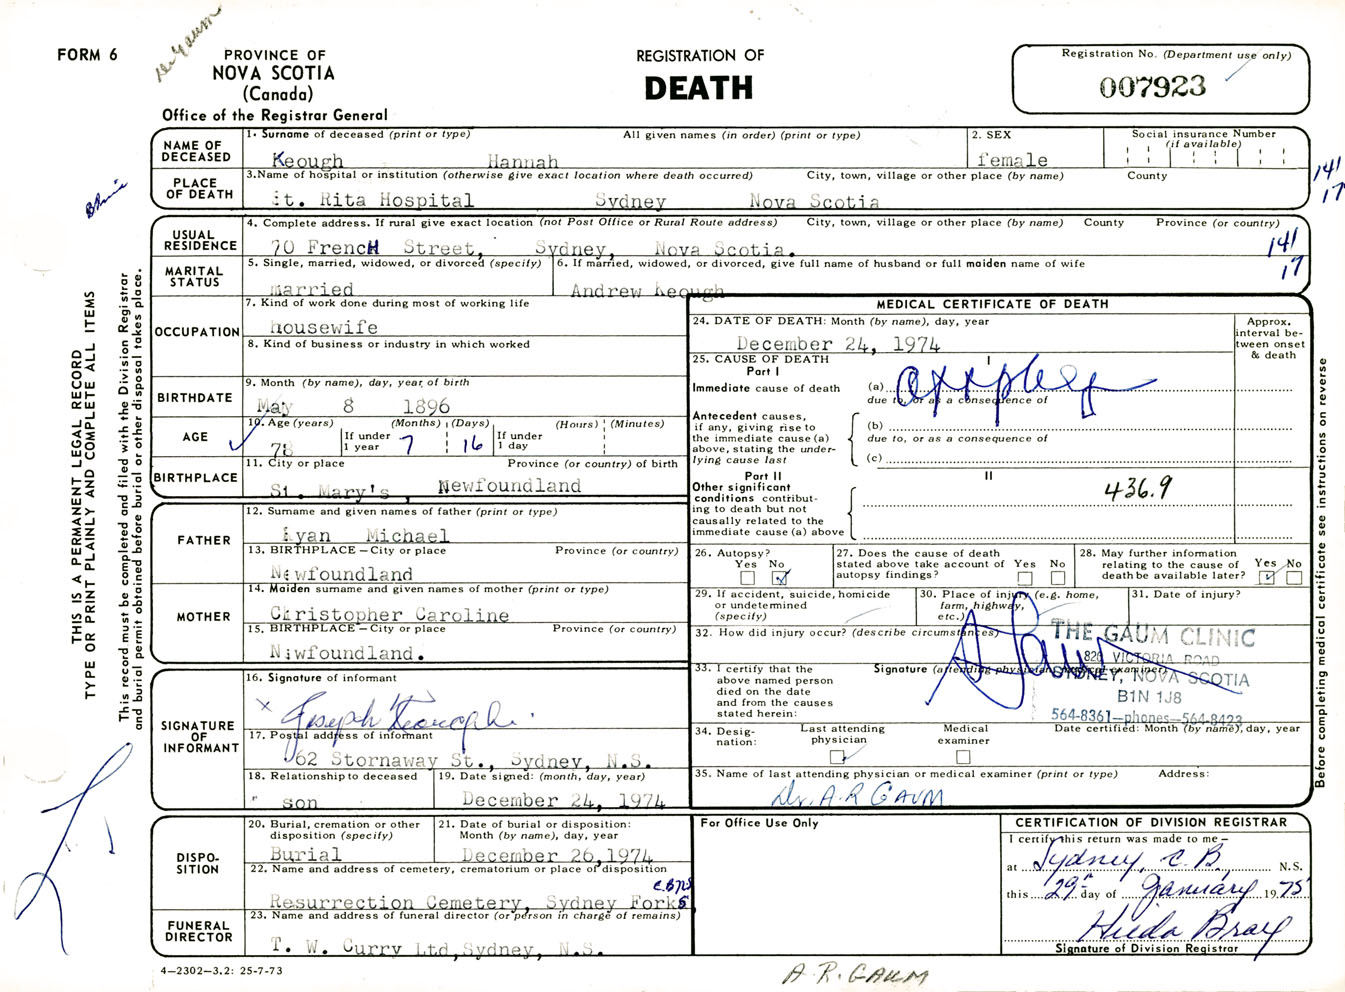 Dr Gaum
FORM 6
PROVINCE OF
NOVA SCOTIA
(Canada)
Office of the Registrar General
REGISTRATION OF
DEATH
Registration No. (Department use only)
007923
NAME OF DECEASED
1. Surname of deceased (print or type) All given names (in order) (print or type)
Keough Hannah
2. SEX
female
Social insurance Number
(if available)
PLACE OF DEATH
3. Name of hospital or institution (otherwise give exact location where death occurred) City, town, village or other place (by name) County
St. Rita Hospital Sydney Nova Scotia
141
17
USUAL RESIDENCE
4. Complete address. If rural give exact location (not Post Office or Rural Route address) City, town, village or other place (by name) County Province (or country)
70 FrencH Street, Sydney, Nova Scotia.
141
17
MARITAL STATUS
5. Single, married, widowed, or divorced (specify)
married
6. If married, widowed, or divorced, give full name of husband or full maiden name of wife
Andrew Keough
OCCUPATION
7. Kind of work done during most of working life
housewife
8. Kind of business or industry in which worked
BIRTHDATE
9. Month (by name), day, year of birth
May 8 1896
AGE
10. Age (years) (Months) (Days) (Hours) (Minutes)
78 If under 1 year 7 16 If under 1 day
BIRTHPLACE
11. City or place Province (or country) of birth
St. Mary's , Newfoundland
FATHER
12. Surname and given names of father (print or type)
Ryan Michael
13. BIRTHPLACE – City or place Province (or country)
Newfoundland
MOTHER
14. Maiden surname and given names of mother (print or type)
Christopher Caroline
15. BIRTHPLACE – City or place Province (or country)
Newfoundland.
SIGNATURE OF INFORMANT
16. Signature of informant
x Joseph Keough
17. Postal address of informant
62 Stornaway St., Sydney, N.S.
18. Relationship to deceased
son
19. Date signed: (month, day, year)
December 24, 1974
DISPO-
SITION
20. Burial, cremation or other
disposition (specify)
Burial
21. Date of burial or disposition:
Month (by name), day, year
December 26,1974
22. Name and address of cemetery, crematorium or place of disposition
C.B N.S
Resurrection Cemetery, Sydney Forks
FUNERAL DIRECTOR
23. Name and address of funeral director (or person in charge of remains)
T. W. Curry Ltd,Sydney, N.S.
4–2302–3.2: 25-7-73
MEDICAL CERTIFICATE OF DEATH
24. DATE OF DEATH: Month (by name), day, year
December 24, 1974
Approx.
interval be-
tween onset
& death
25. CAUSE OF DEATH
Part I
I
Immediate cause of death
(a)
due to, or as a consequence of
Antecedent causes,
if any, giving rise to
the immediate cause (a)
above, stating the under-
lying cause last
(b)
due to, or as a consequence of
(c)
Part II
II
Other significant
conditions contribut-
ing to death but not
causally related to the
immediate cause (a) above
436.9
26. Autopsy?
Yes No
27. Does the cause of death
stated above take account of
autopsy findings?
Yes No
28. May further information
relating to the cause of
death be available later?
Yes No
29. If accident, suicide, homicide
or undetermined
(specify)
30. Place of injury (e.g. home,
farm, highway,
etc.)
31. Date of injury?
32. How did injury occur? (describe circumstances)
33. I certify that the
above named person
died on the date
and from the causes
stated herein:
Signature (attending physician or medical examiner)
A Gaum
THE GAUM CLINIC
820 VICTORIA ROAD
SYDNEY, NOVA SCOTIA
B1N 1J8
564-8361–phones–564-8423
34. Desig-
nation:
Last attending
physician
Medical
examiner
Date certified: Month (by name), day, year
35. Name of last attending physician or medical examiner (print or type) Address:
Dr. A.R GAUM
For Office Use Only
CERTIFICATION OF DIVISION REGISTRAR
I certify this return was made to me –
at Sydney, C.B. N.S.
this 29th day of January 1975
Hilda Bray
Signature of Division Registrar
A.R. GAUM
THIS IS A PERMANENT LEGAL RECORD
TYPE OR PRINT PLAINLY AND COMPLETE ALL ITEMS
This record must be completed and filed with the Division Registrar
and burial permit obtained before burial or other disposal takes place.
Before completing medical certificate see instructions on reverse